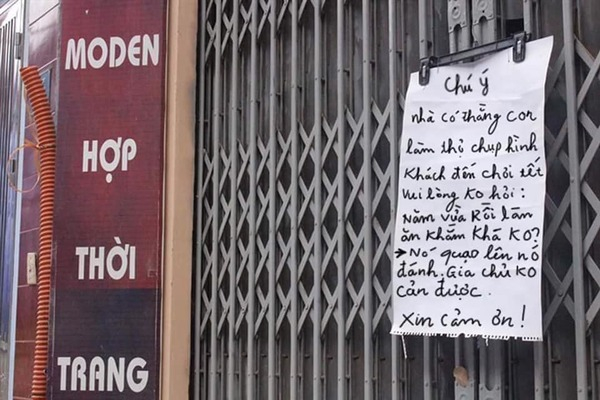 MODEN
HỢP
THỜI
TRANG
Chú ý
nhà có thằng con
làm thợ chụp hình
Khách đến chơi tết
Vui lòng Ko hỏi:
Năm vừa Rồi làm
ăn Khấm Khá Ko?
→ Nó quạo lên nó
đánh. Gia chủ Ko
cản được.
Xin cảm ơn!